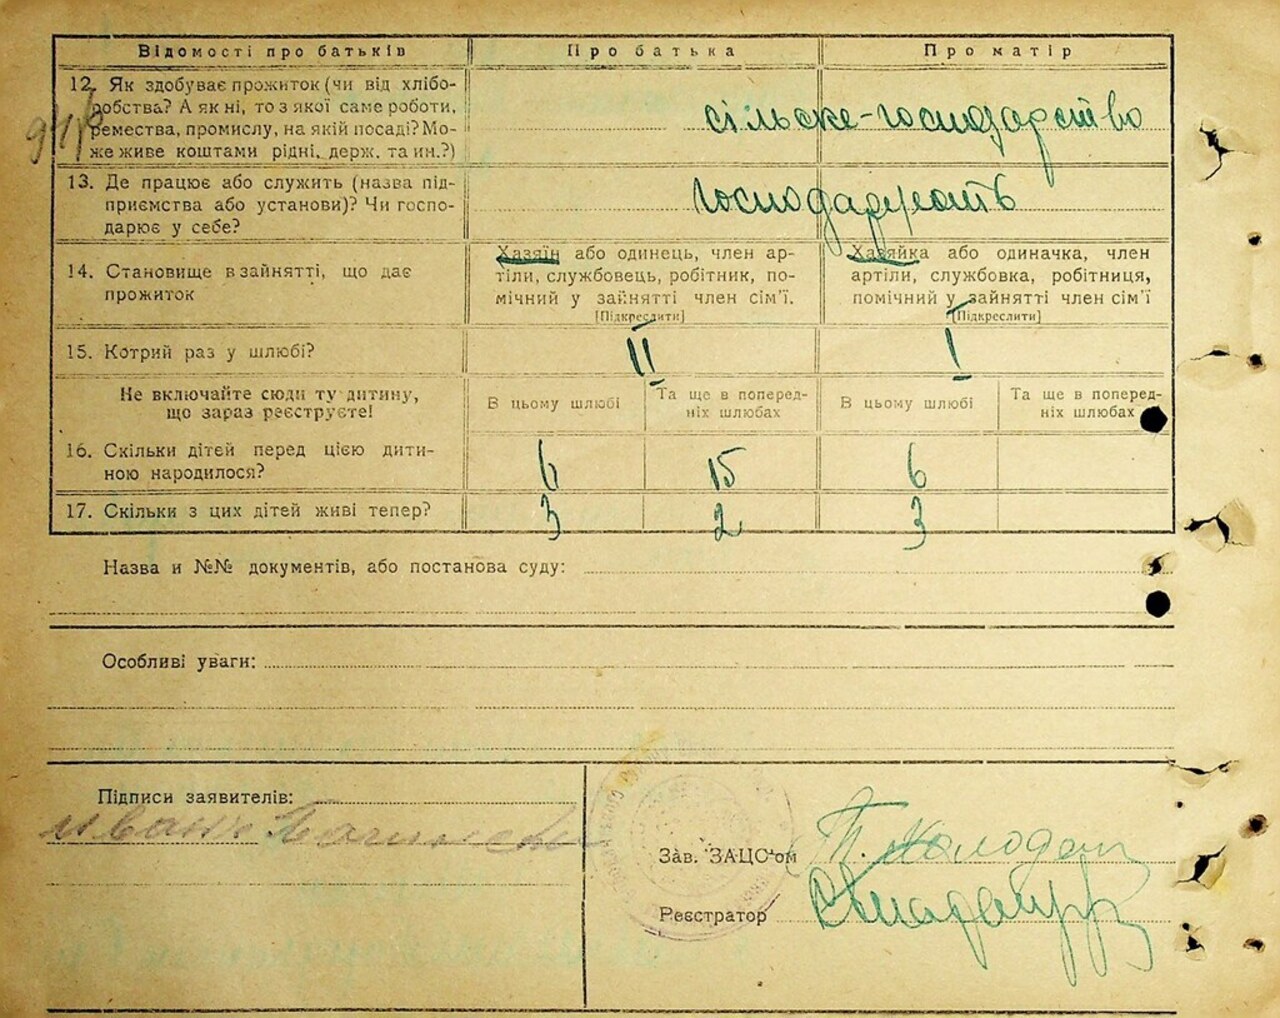 Відомості про батьків Про батька Про матір
12. Як здобуває прожиток (чи від хлібо-
робства? А як ні, то з якої саме роботи,
ремества, промислу, на якій посаді? Мо-
же живе коштами рідні, держ. та ин.?)
сільске-господарство
13. Де працює або служить (назва під-
приємства або установи)? Чи госпо-
дарює у себе?
господарюють
14. Становище в зайнятті, що дає
прожиток
Хазяїн або одинець, член ар-
тіли, службовець, робітник, по-
мічний у зайнятті член сім'ї.
[Підкреслити]
Хазяйка або одиначка, член
артіли, службовка, робітниця,
помічний у зайнятті член сім'ї
[Підкреслити]
15. Котрий раз у шлюбі? II I
Не включайте сюди ту дитину,
що зараз реєструєте!
В цьому шлюбі
Та ще в поперед-
ніх шлюбах
В цьому шлюбі
Та ще в поперед-
ніх шлюбах
16. Скільки дітей перед цією дити-
ною народилося?
6 15 6
17. Скільки з цих дітей живі тепер? 3 2 3
Назва и №№ документів, або постанова суду:
Особливі уваги:
Підписи заявителів:
Зав. ЗАЦС'ом
Реєстратор